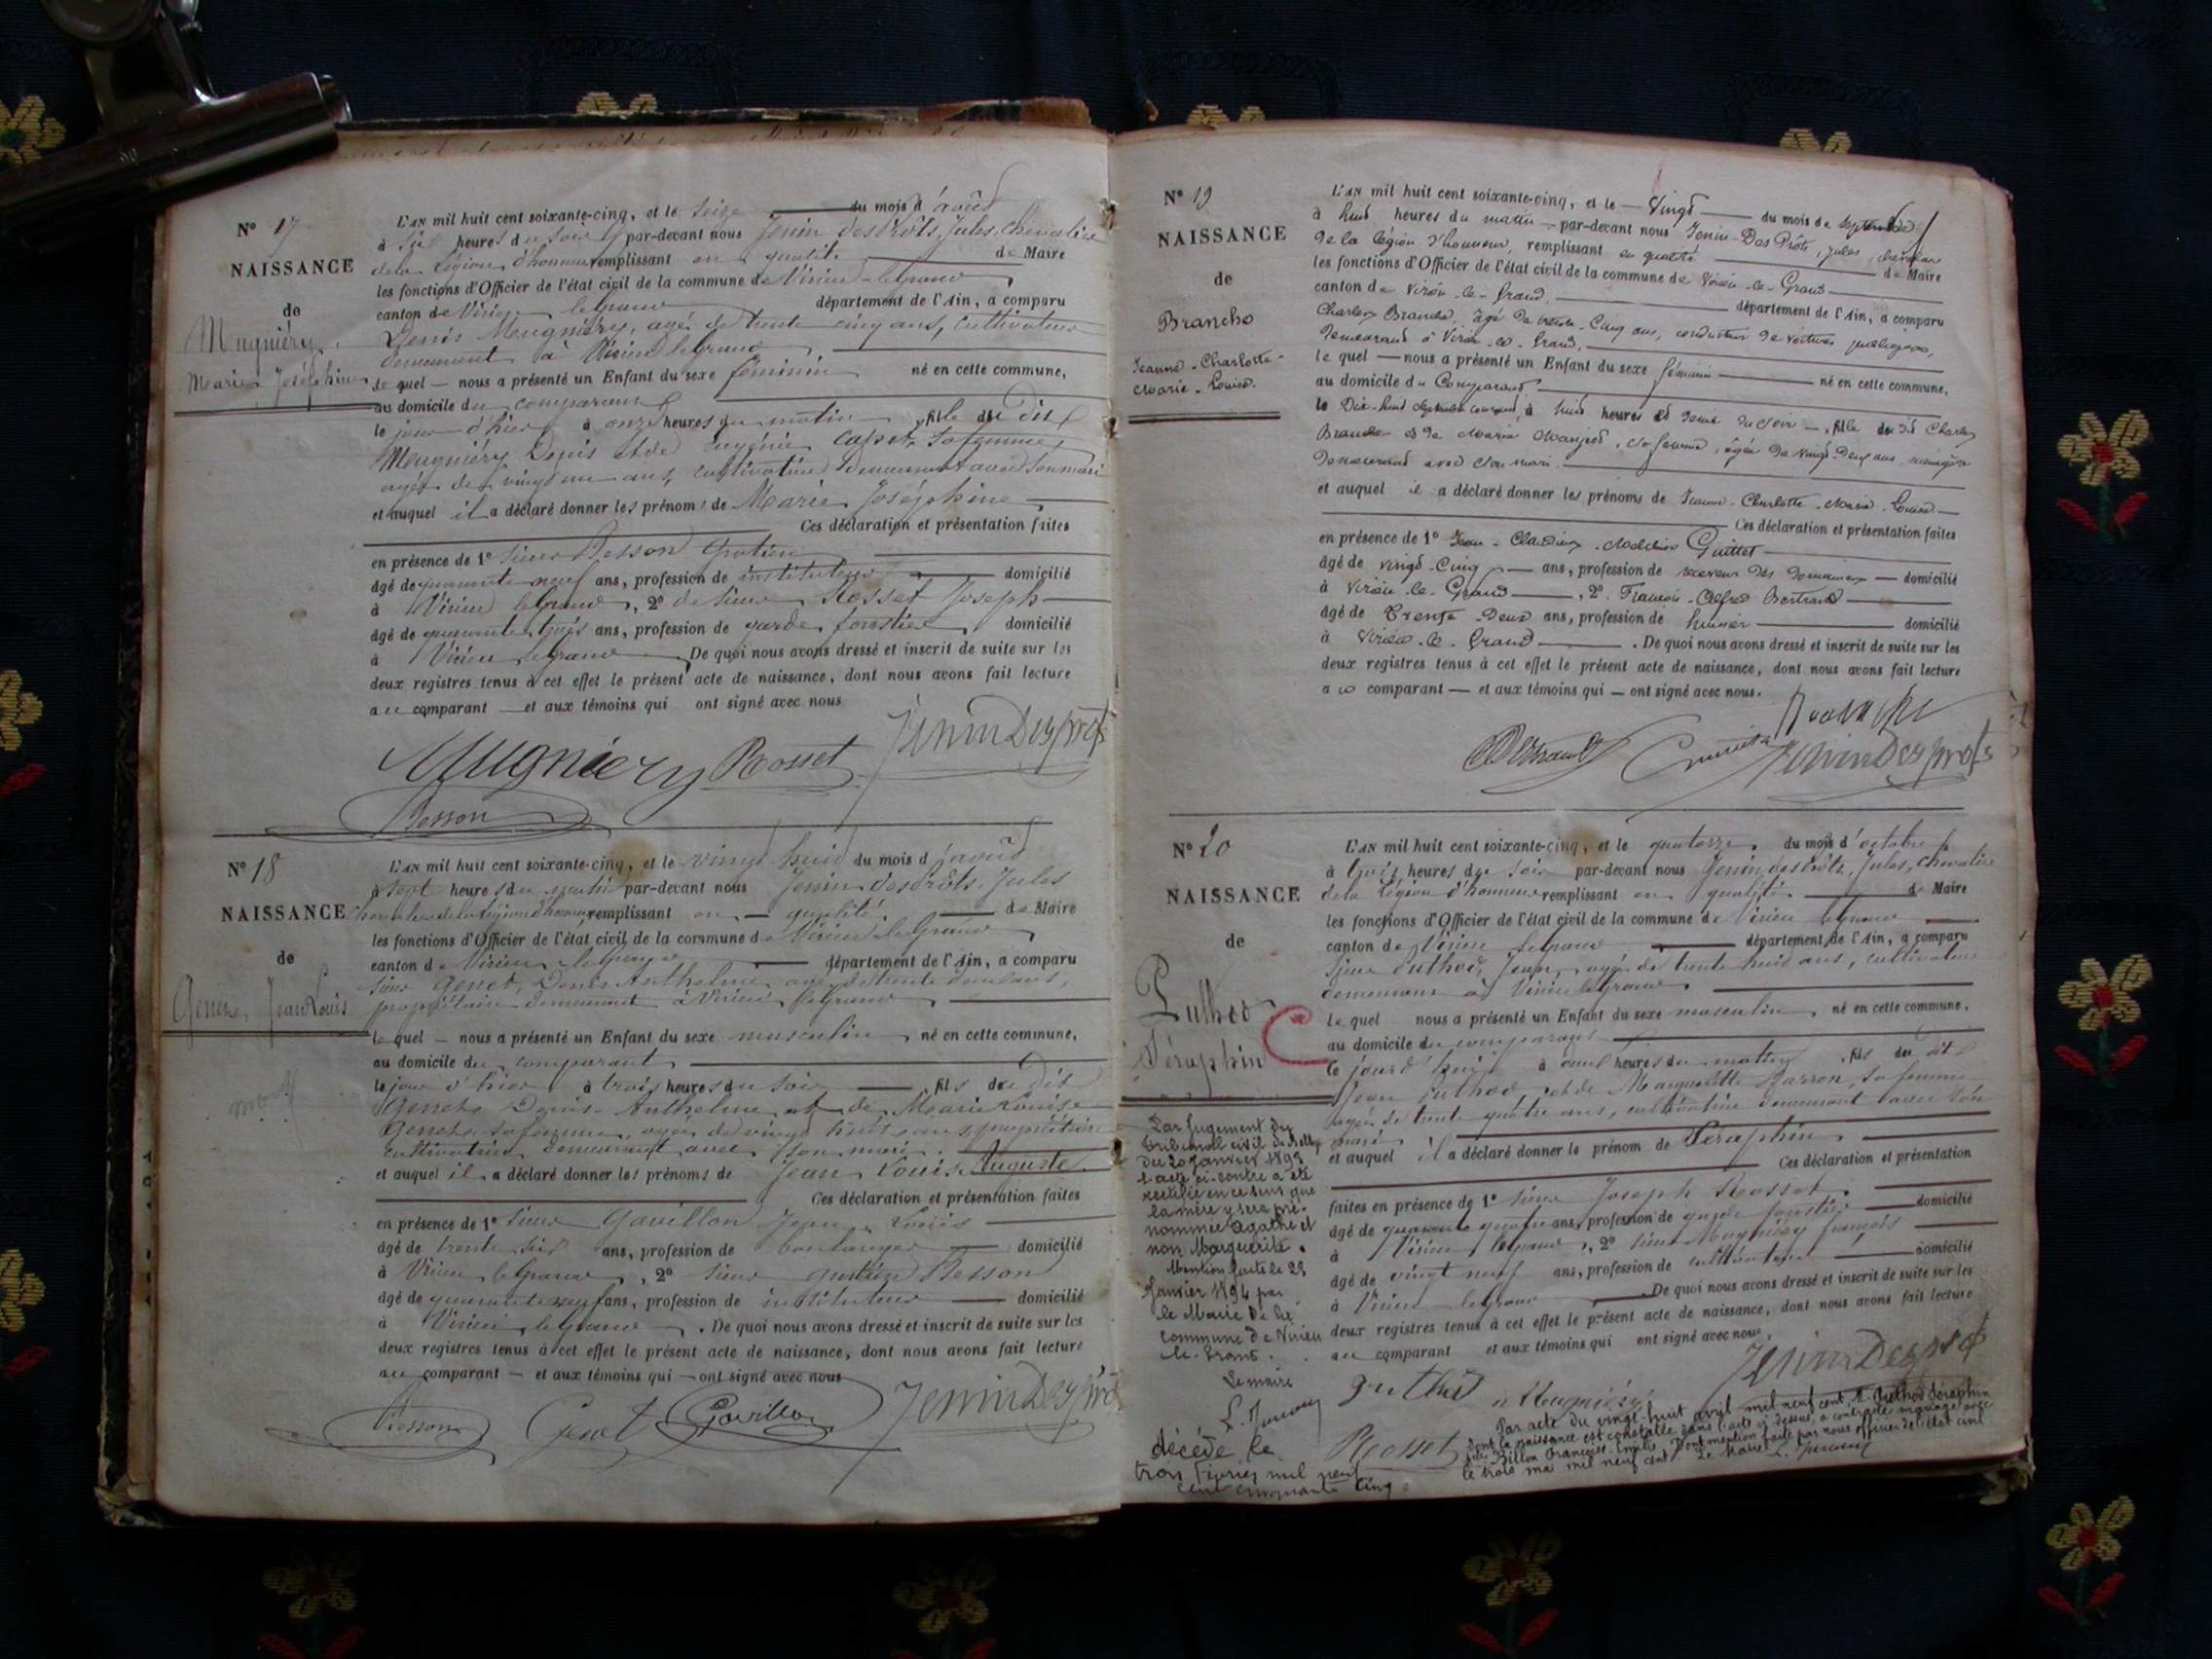 N° 17
NAISSANCE
de
Mugniéry
Marie Joséphine
L'AN mil huit cent soixante-cinq, et le seize du mois d'août
à six heures du soir par-devant nous Jenin des Prôts, Jules, Chevalier
de la Légion d'honneur remplissant en qualité de Maire
les fonctions d'Officier de l'état civil de la commune de Virieu-le-grand
canton de Virieu le grand département de l'Ain, a comparu
Denis Mugniéry, agé de trente cinq ans, cultivateur
demeurant à Virieu le grand
le quel — nous a présenté un Enfant du sexe féminin né en cette commune,
au domicile du comparant
le jour d'hier à onze heures du matin, fille du dit
Mugniéry Denis et de Eugénie sa femme,
agée de vingt un ans, cultivatrice demeurant avec son mari
et auquel il a déclaré donner les prénoms de Marie Joséphine
Ces déclaration et présentation faites
en présence de 1° sieur Besson Gratien
âgé de quarante neuf ans, profession de instituteur domicilié
à Virieu le grand, 2° de sieur Rosset Joseph
âgé de quarante trois ans, profession de garde forestier domicilié
à Virieu le grand De quoi nous avons dressé et inscrit de suite sur les
deux registres tenus à cet effet le présent acte de naissance, dont nous avons fait lecture
au comparant — et aux témoins qui ont signé avec nous
Mugniery Rosset JeninDesprots
Besson
N° 18
NAISSANCE
de
Genet, Jean Louis
L'AN mil huit cent soixante-cinq, et le vingt huit du mois d'août
à sept heures du matin par-devant nous Jenin des Prôts, Jules
Chevalier de la légion d'honneur remplissant en — qualité de Maire
les fonctions d'Officier de l'état civil de la commune de Virieu le Grand
canton de Virieu le grand département de l'Ain, a comparu
sieur Genet, Denis Anthelme agé de trente deux ans,
propriétaire demeurant à Virieu le grand
le quel — nous a présenté un Enfant du sexe masculin né en cette commune,
au domicile du comparant
le jour d'hier à trois heures du soir, fils du dit
Genet Denis-Anthelme et de Marie Louise
Genet, sa femme, agée de vingt huit ans, propriétaire
cultivatrice demeurant avec son mari.
et auquel il a déclaré donner les prénoms de Jean Louis Auguste
Ces déclaration et présentation faites
en présence de 1° sieur Gavillon Jean Louis
âgé de trente six ans, profession de boulanger domicilié
à Virieu le Grand, 2° sieur Gratien Besson
âgé de quarante neuf ans, profession de instituteur domicilié
à Virieu le grand. De quoi nous avons dressé et inscrit de suite sur les
deux registres tenus à cet effet le présent acte de naissance, dont nous avons fait lecture
au comparant — et aux témoins qui — ont signé avec nous
Besson Genet Gavillon JeninDesprots
N° 19
NAISSANCE
de
Branche
Jeanne-Charlotte-
Marie-Louise.
L'AN mil huit cent soixante-cinq, et le — Vingt — du mois de septembre
à huit heures du matin — par-devant nous Jenin-Des Prôts, Jules, chevalier
de la légion d'honneur, remplissant en qualité de Maire
les fonctions d'Officier de l'état civil de la commune de Virieu-le-Grand
canton de Virieu-le-Grand département de l'Ain, a comparu
Charles Branche, âgé de trente-cinq ans, conducteur de voitures publiques,
demeurant à Virieu-le-Grand,
le quel — nous a présenté un Enfant du sexe féminin né en cette commune,
au domicile du Comparant
le Dix-huit septembre courant, à huit heures et demie du soir —, fille du dit Charles
Branche et de Marie sa femme, âgée de vingt-deux ans, ménagère
demeurant avec son mari.
et auquel il a déclaré donner les prénoms de Jeanne-Charlotte-Marie-Louise
Ces déclaration et présentation faites
en présence de 1° Jean-Claudius Guittet
âgé de vingt-cinq — ans, profession de receveur des domaines — domicilié
à Virieu-le-Grand, 2° François-Alfred Bertrand
âgé de Trente-Deux ans, profession de huissier domicilié
à Virieu-le-Grand. De quoi nous avons dressé et inscrit de suite sur les
deux registres tenus à cet effet le présent acte de naissance, dont nous avons fait lecture
au comparant — et aux témoins qui — ont signé avec nous.
Branche
Bertrand JeninDesprots
N° 20
NAISSANCE
de
Puthod
Séraphin
L'AN mil huit cent soixante-cinq, et le quatorze du mois d'octobre
à trois heures du soir par-devant nous Jenin des Prôts, Jules, Chevalier
de la Légion d'honneur remplissant en qualité de Maire
les fonctions d'Officier de l'état civil de la commune de Virieu le grand
canton de Virieu le grand département de l'Ain, a comparu
sieur Puthod, Jean, agé de trente huit ans, cultivateur
demeurant à Virieu le grand.
le quel nous a présenté un Enfant du sexe masculin, né en cette commune,
au domicile du comparant
le jourd'hui à onze heures du matin, fils du dit
Jean Puthod et de Marguerite Barron, sa femme
agée de trente quatre ans, cultivatrice demeurant avec son
mari
et auquel il a déclaré donner le prénom de Séraphin
Ces déclaration et présentation
faites en présence de 1° sieur Joseph Rosset domicilié
âgé de quarante quatre ans, profession de garde forestier
à Virieu le grand, 2° sieur Mugniéry François
âgé de vingt neuf ans, profession de cultivateur domicilié
à Virieu le grand De quoi nous avons dressé et inscrit de suite sur les
deux registres tenus à cet effet le présent acte de naissance, dont nous avons fait lecture
au comparant et aux témoins qui ont signé avec nous.
Puthod Mugniéry JeninDesprots
Rosset
Par jugement du
tribunal civil de Belley
du 20 janvier 1893
l'acte ci-contre a été
rectifié en ce sens que
la mère y sera pré-
nommée Agathe et
non Marguerite.
Mention faite le 23
Janvier 1894 par
le Maire de la
Commune de Virieu
le-Grand.
Le maire
décédé le
trois février mil neuf
cent cinquante cinq
Par acte du vingt-huit avril mil neuf cent, M. Puthod Séraphin
dont la naissance est constatée dans l'acte ci-dessus, a contracté mariage avec
Billon Françoise-Emilie. Dont mention faite par nous officier de l'état civil
le trois mai mil neuf cent. Le Maire